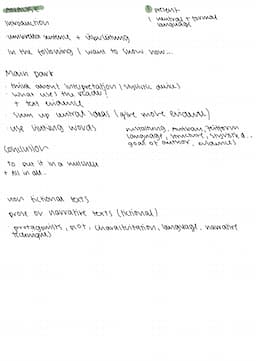 ① present
! neutral + formal
language
Introduction
umbrella sentence +
In the following I want to show how...
Main part
- think about interpretation (stylistic
- what uses the
+ text evidence
- sum up central ideas (give more evidence)
- use linking words
language, structure,
goal of author, evidence)
Conclusion
to put it in a nutshell
+ all in all..
non fictional texts
prose or narrative texts (fictional)
protagonists, plot, characterization, language, narrative
technique)